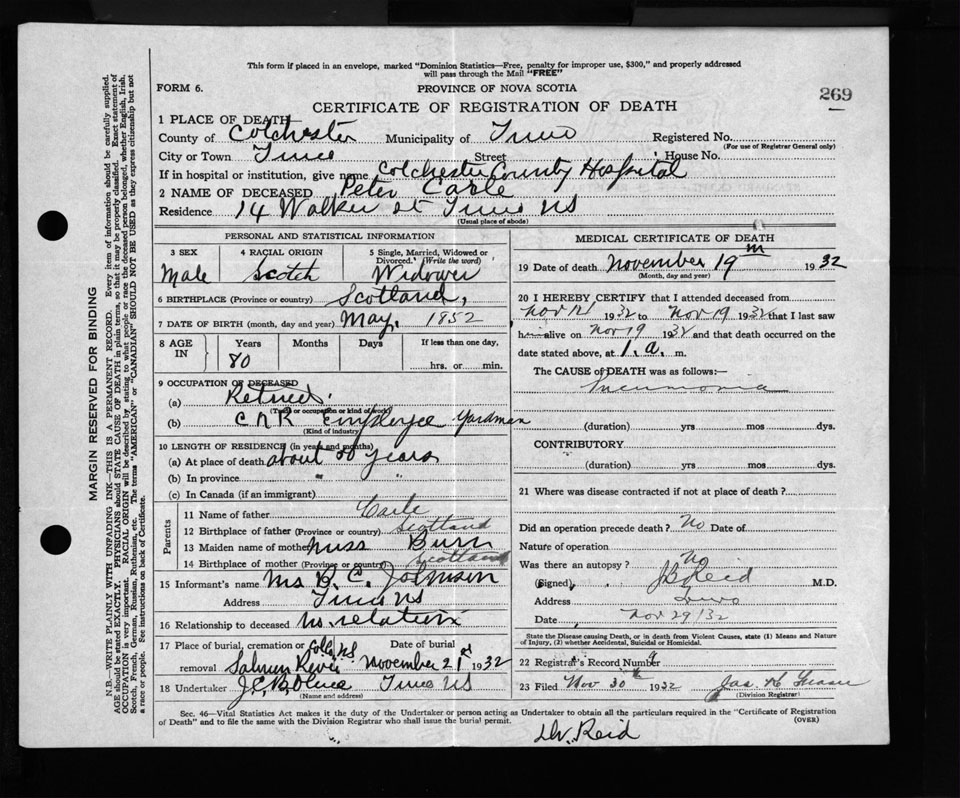 This form if placed in an envelope, marked "Dominion Statistics—Free, penalty for improper use, $300," and properly addressed
will pass through the Mail "FREE"
FORM 6.
PROVINCE OF NOVA SCOTIA
269
CERTIFICATE OF REGISTRATION OF DEATH
1 PLACE OF DEATH
County of Colchester Municipality of Truro Registered No.
(For use of Registrar General only)
City or Town Truro Street House No.
If in hospital or institution, give name Colchester County Hospital
2 NAME OF DECEASED Peter Carle
Residence 14 Walker St Truro NS
(Usual place of abode)
PERSONAL AND STATISTICAL INFORMATION
3 SEX 4 RACIAL ORIGIN 5 Single, Married, Widowed or
Divorced. (Write the word)
Male Scotch Widower
6 BIRTHPLACE (Province or country) Scotland,
7 DATE OF BIRTH (month, day and year) May, 1852
8 AGE IN Years Months Days If less than one day,
80 hrs. or min.
9 OCCUPATION OF DECEASED
(a) Retired.
(Trade or occupation or kind of work)
(b) C N R Employee Yardman
(Kind of industry)
10 LENGTH OF RESIDENCE (in years and months)
(a) At place of death about 50 years
(b) In province " "
(c) In Canada (if an immigrant)
Parents
11 Name of father Carle
12 Birthplace of father (Province or country) Scotland
13 Maiden name of mother Miss Burn
14 Birthplace of mother (Province or country) Scotland
15 Informant's name Mrs B. C. Johnson
Address Truro NS
16 Relationship to deceased no relation
17 Place of burial, cremation or Date of burial
removal Salmon River Colc NS November 21st 1932
18 Undertaker Truro NS
(Name and address)
MEDICAL CERTIFICATE OF DEATH
19 Date of death November 19th 1932
(Month, day and year)
20 I HEREBY CERTIFY that I attended deceased from
Nov 12 1932 to Nov 19 1932 that I last saw
him alive on Nov 19 1932 and that death occurred on the
date stated above, at 1. a. m.
The CAUSE of DEATH was as follows:—
Pneumonia
(duration) yrs mos dys.
CONTRIBUTORY
(duration) yrs mos dys.
21 Where was disease contracted if not at place of death?
Did an operation precede death? No Date of
Nature of operation
Was there an autopsy? No
(Signed) J B Reid M.D.
Address Truro
Date Nov 29/32
State the Disease causing Death, or in death from Violent Causes, state (1) Means and Nature
of Injury, (2) whether Accidental, Suicidal or Homicidal.
22 Registrar's Record Number
23 Filed Nov 30th 1932 Jas. H
(Division Registrar)
Sec. 46—Vital Statistics Act makes it the duty of the Undertaker or person acting as Undertaker to obtain all the particulars required in the "Certificate of Registration
of Death" and to file the same with the Division Registrar who shall issue the burial permit.
(OVER)
Dr. Reid
MARGIN RESERVED FOR BINDING
N.B.—WRITE PLAINLY WITH UNFADING INK—THIS IS A PERMANENT RECORD. Every item of information should be carefully supplied.
AGE should be stated EXACTLY. PHYSICIANS should STATE CAUSE OF DEATH in plain terms, so that it may be properly classified. Exact statement of
OCCUPATION is very important. RACIAL ORIGIN will be described by stating to what people or race the deceased person belonged, whether English, Irish,
Scotch, French, German, Russian, Ruthenian, etc. The terms "AMERICAN" or "CANADIAN" SHOULD NOT BE USED as they express citizenship but not
a race or people. See instructions on back of Certificate.